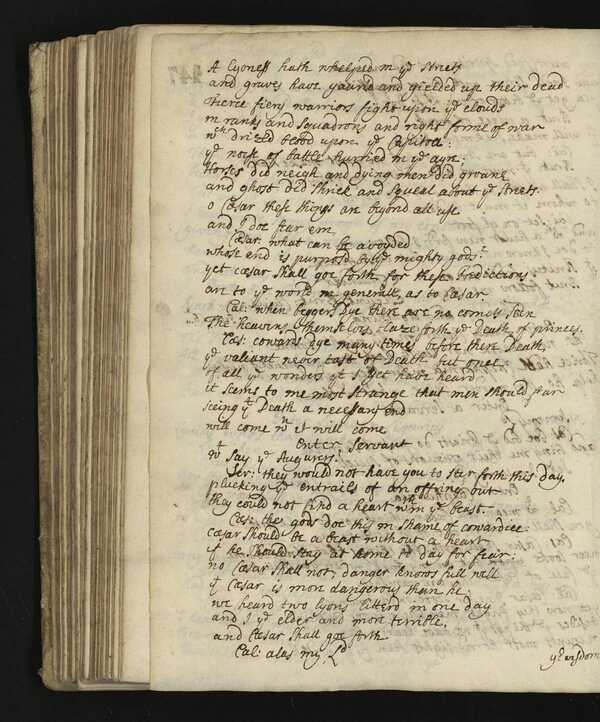 A Lyoness hath whelped in yᵉ streets
and graves have yawnd and yielded up their dead
Fierce fiery warriors fight upon yᵉ clouds
in ranks and squadrons and right forme of war
wᶜʰ drizled blood upon yᵉ Capitol:
yᵉ noise of battle hurried in yᵉ ayre:
Horses did neigh and dying men did groane
and ghost did shriek and squeal about yᵉ streets.
o Cæsar these things are beyond all use
and I doe fear em
Cæsar what can be avoyded
whose end is purposd by yᵉ mighty gods:
yet cæsar shall goe forth for these predictions
are to yᵉ world in generall, as to Cæsar
Cal: when beggers dye there are no comets seen
The heavens themselves blaze forth yᵉ Death of princes.
Cæs: cowards dye many times before there Death
yᵉ valeant never tast of Death but once
of all yᵉ wonders yᵗ I yet have heard
it seems to me most strange that men should fear
seeing yᵗ Death a necessary end
will come wⁿ it will come
Enter Servant
wᵗ say yᵉ Augurers
Ser: they would not have you to stir forth this day.
plucking yᵉ entrails of an offring out
they could not find a heart wᵗʰin yᵉ beast.
Cæs: the gods doe this in shame of cowardice
cæsar should be a beast without a heart
if he should stay at home to day for fear:
no Cæsar shall not, danger knows full well
yᵗ Cæsar is more dangerous than he
we heard two lyons litterd in one day
and I yᵉ elder and more terrible,
and Cæsar shall goe forth
Cal: alas my Lᵈ
yʳ wisdom